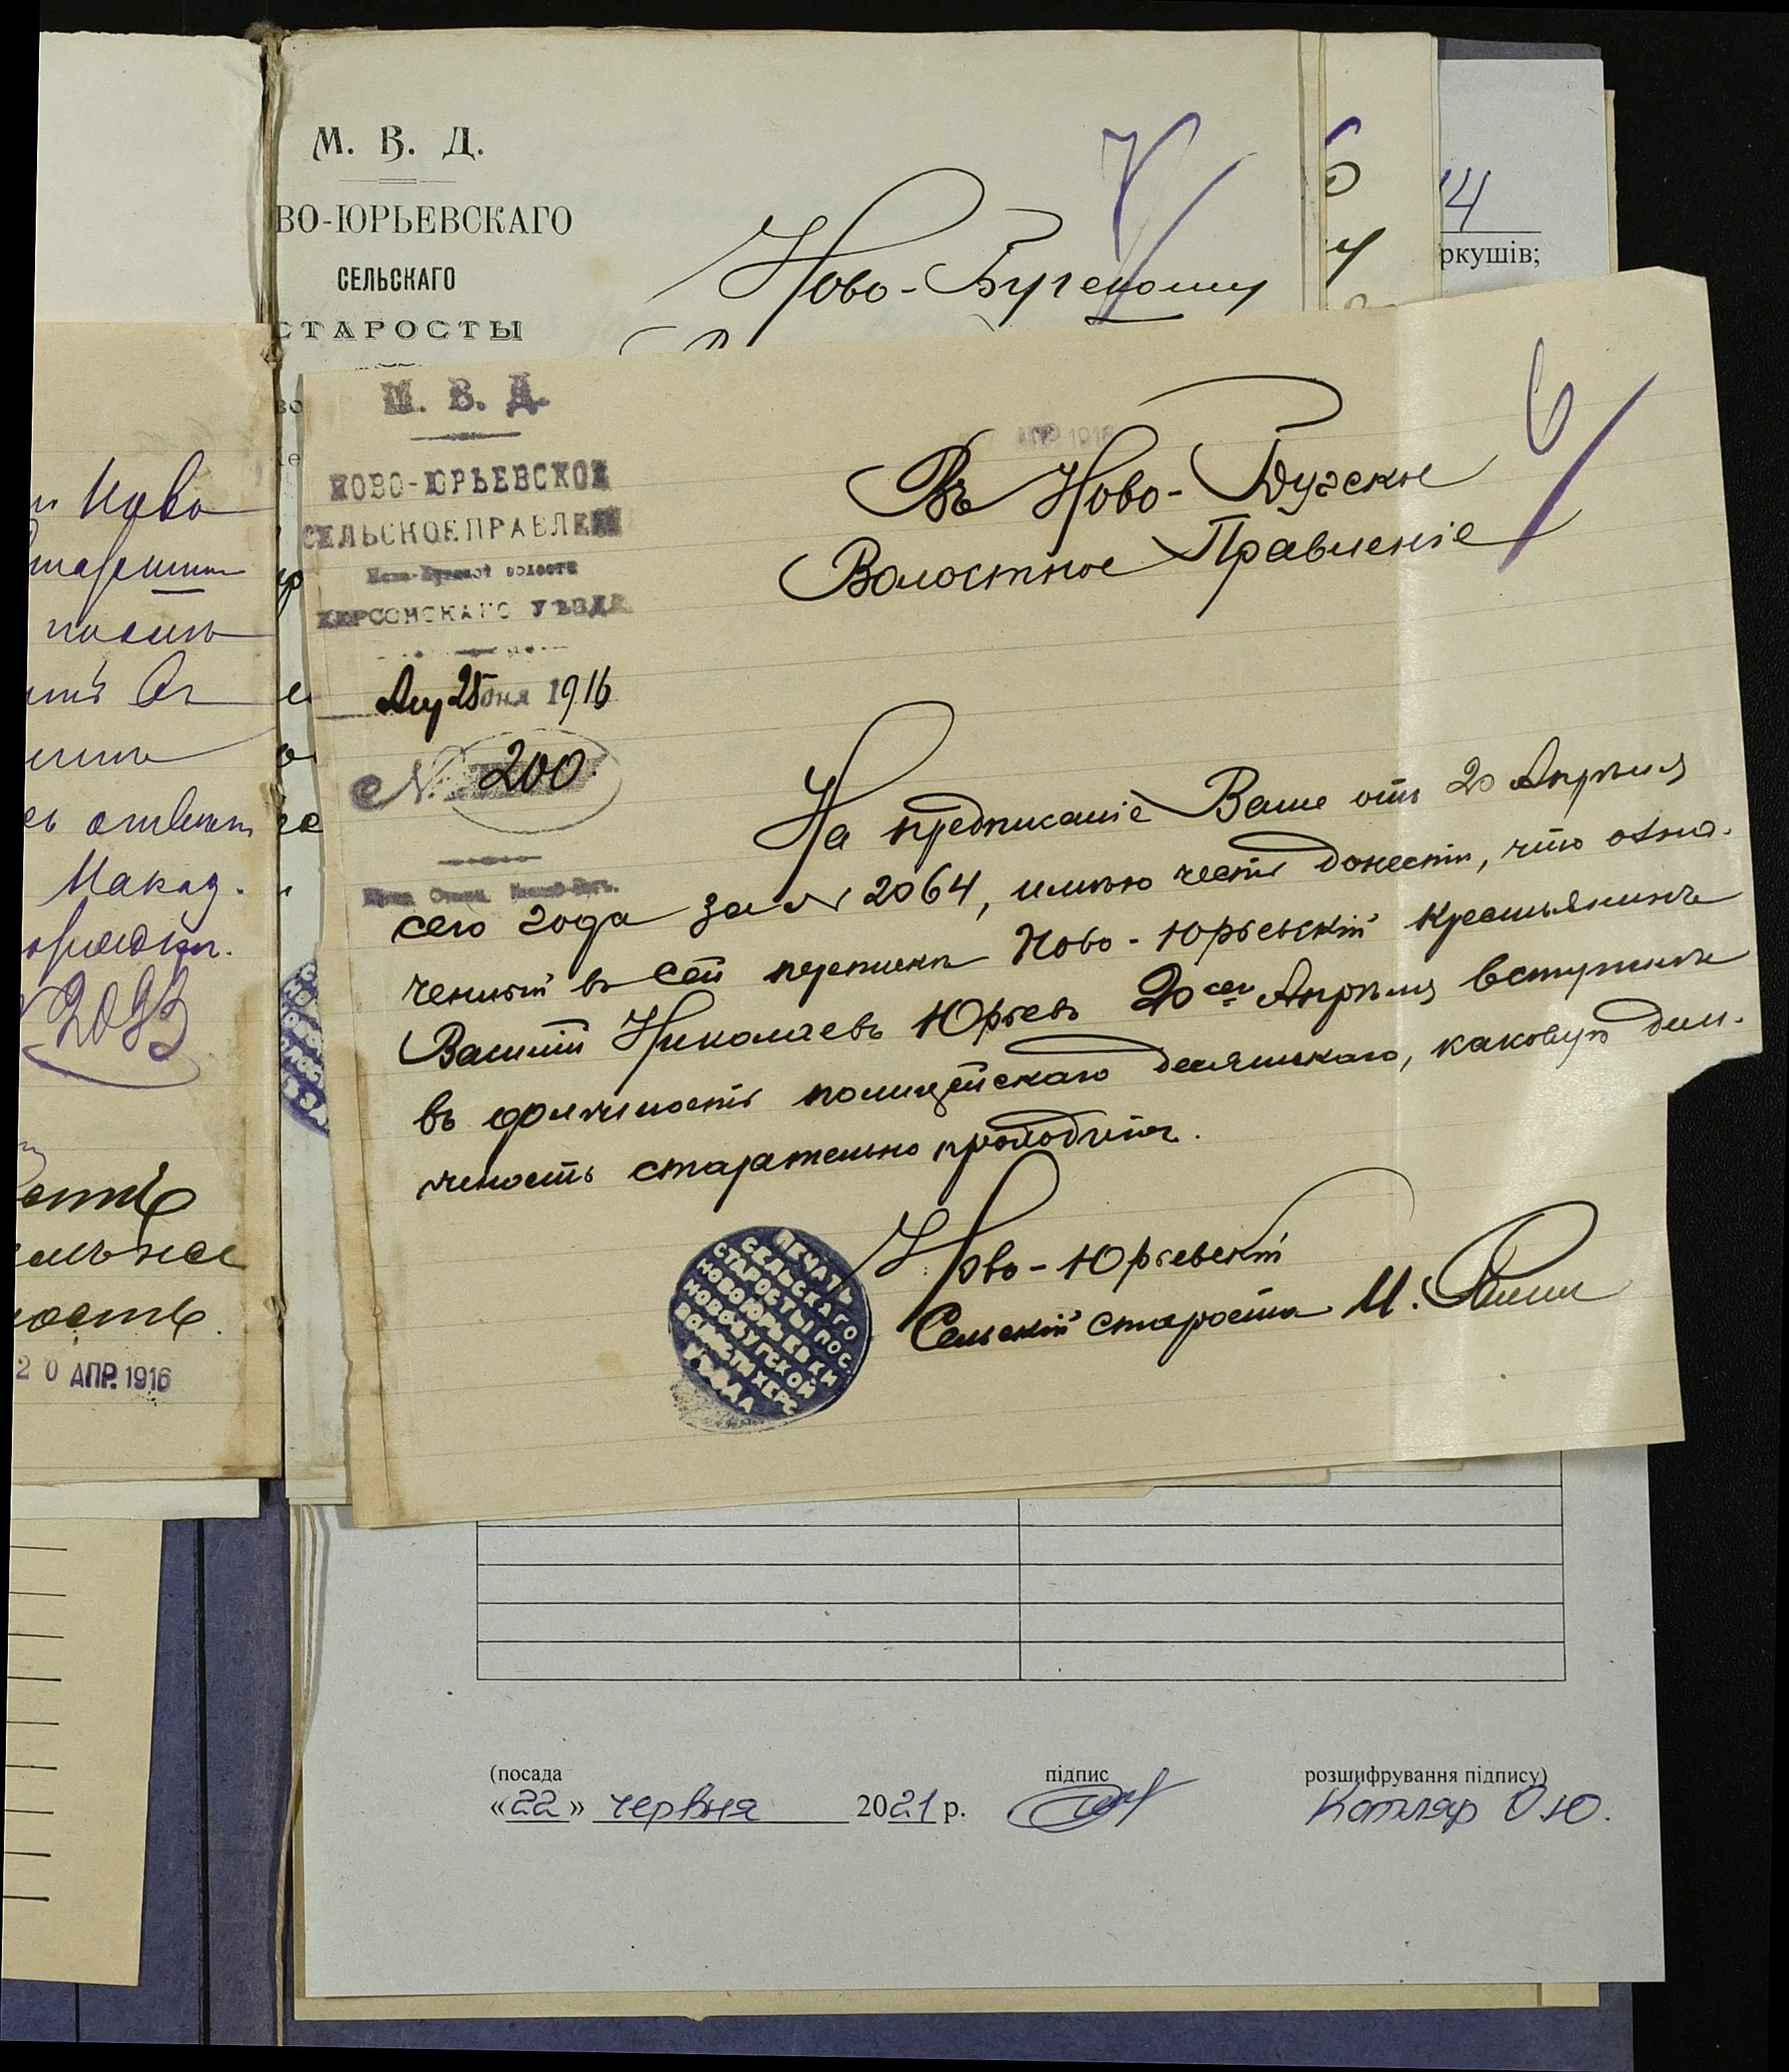 М. В. Д.
ВО-ЮРЬЕВСКАГО
СЕЛЬСКАГО
СТАРОСТЫ
Ново-Бугскому
7
14
ркушів;
М. В. Д.
НОВО-ЮРЬЕВСКОЕ
СЕЛЬСКОЕ ПРАВЛЕНІЕ
Ново-Бугской волости
ХЕРСОНСКАГО УѢЗДА
25 дня 1916
№ 200
АПР 1916
6
Въ Ново-Бугское
Волостное Правленіе
На предписаніе Ваше отъ 20 Апрѣля
сего года за № 2064, имѣю честь донести, что озна-
ченный въ сей перепискѣ Ново-Юрьевскій крестьянинъ
Николаевъ Юрьевъ 20 сего Апрѣля вступилъ
въ должность полицейскаго десятскаго, каковую дол-
жность старательно проходитъ.
Ново-Юрьевскій
Сельскій староста И.
ПЕЧАТЬ
СЕЛЬСКАГО
СТАРОСТЫ ПОС.
НОВОЮРЬЕВКИ
НОВОБУГСКОЙ
ВОЛОСТИ ХЕРС.
УѢЗДА
Ново
Маказ.
2093
ность
20 АПР. 1916
(посада
підпис
розшифрування підпису)
«22» червня 2021 р.
Котляр О.Ю.